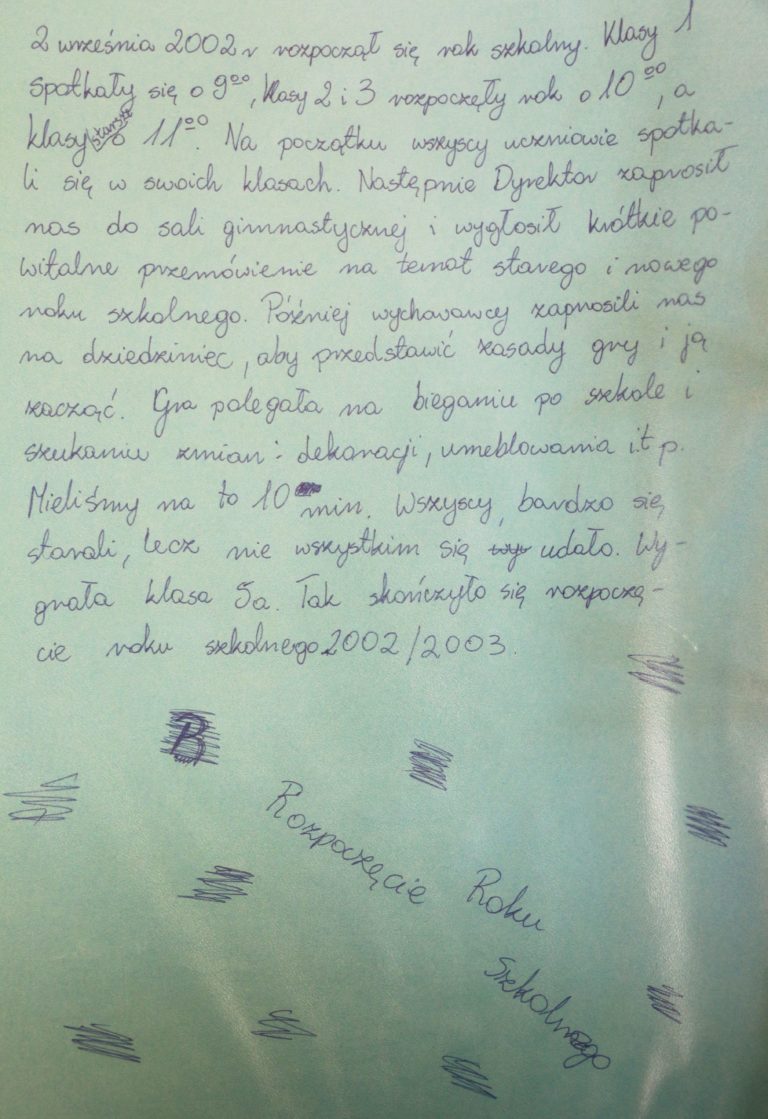 2 września 2002 r rozpoczął się rok szkolny. Klasy 1
spotkały się o 9⁰⁰, klasy 2 i 3 rozpoczęły rok o 10⁰⁰, a
klasy starsze o 11⁰⁰. Na początku wszyscy uczniowie spotka-
li się w swoich klasach. Następnie Dyrektor zaprosił
nas do sali gimnastycznej i wygłosił krótkie po-
witalne przemówienie na temat starego i nowego
roku szkolnego. Później wychowawcy zaprosili nas
na dziedziniec, aby przedstawić zasady gry i ją
zacząć. Gra polegała na bieganiu po szkole i
szukaniu zmian: dekoracji, umeblowania i.t p.
Mieliśmy na to 10 min. Wszyscy, bardzo się
starali, lecz nie wszystkim się udało. Wy-
grała klasa 5a. Tak skończyło się rozpoczę-
cie roku szkolnego 2002/2003.
B
Rozpoczęcie Roku
Szkolnego